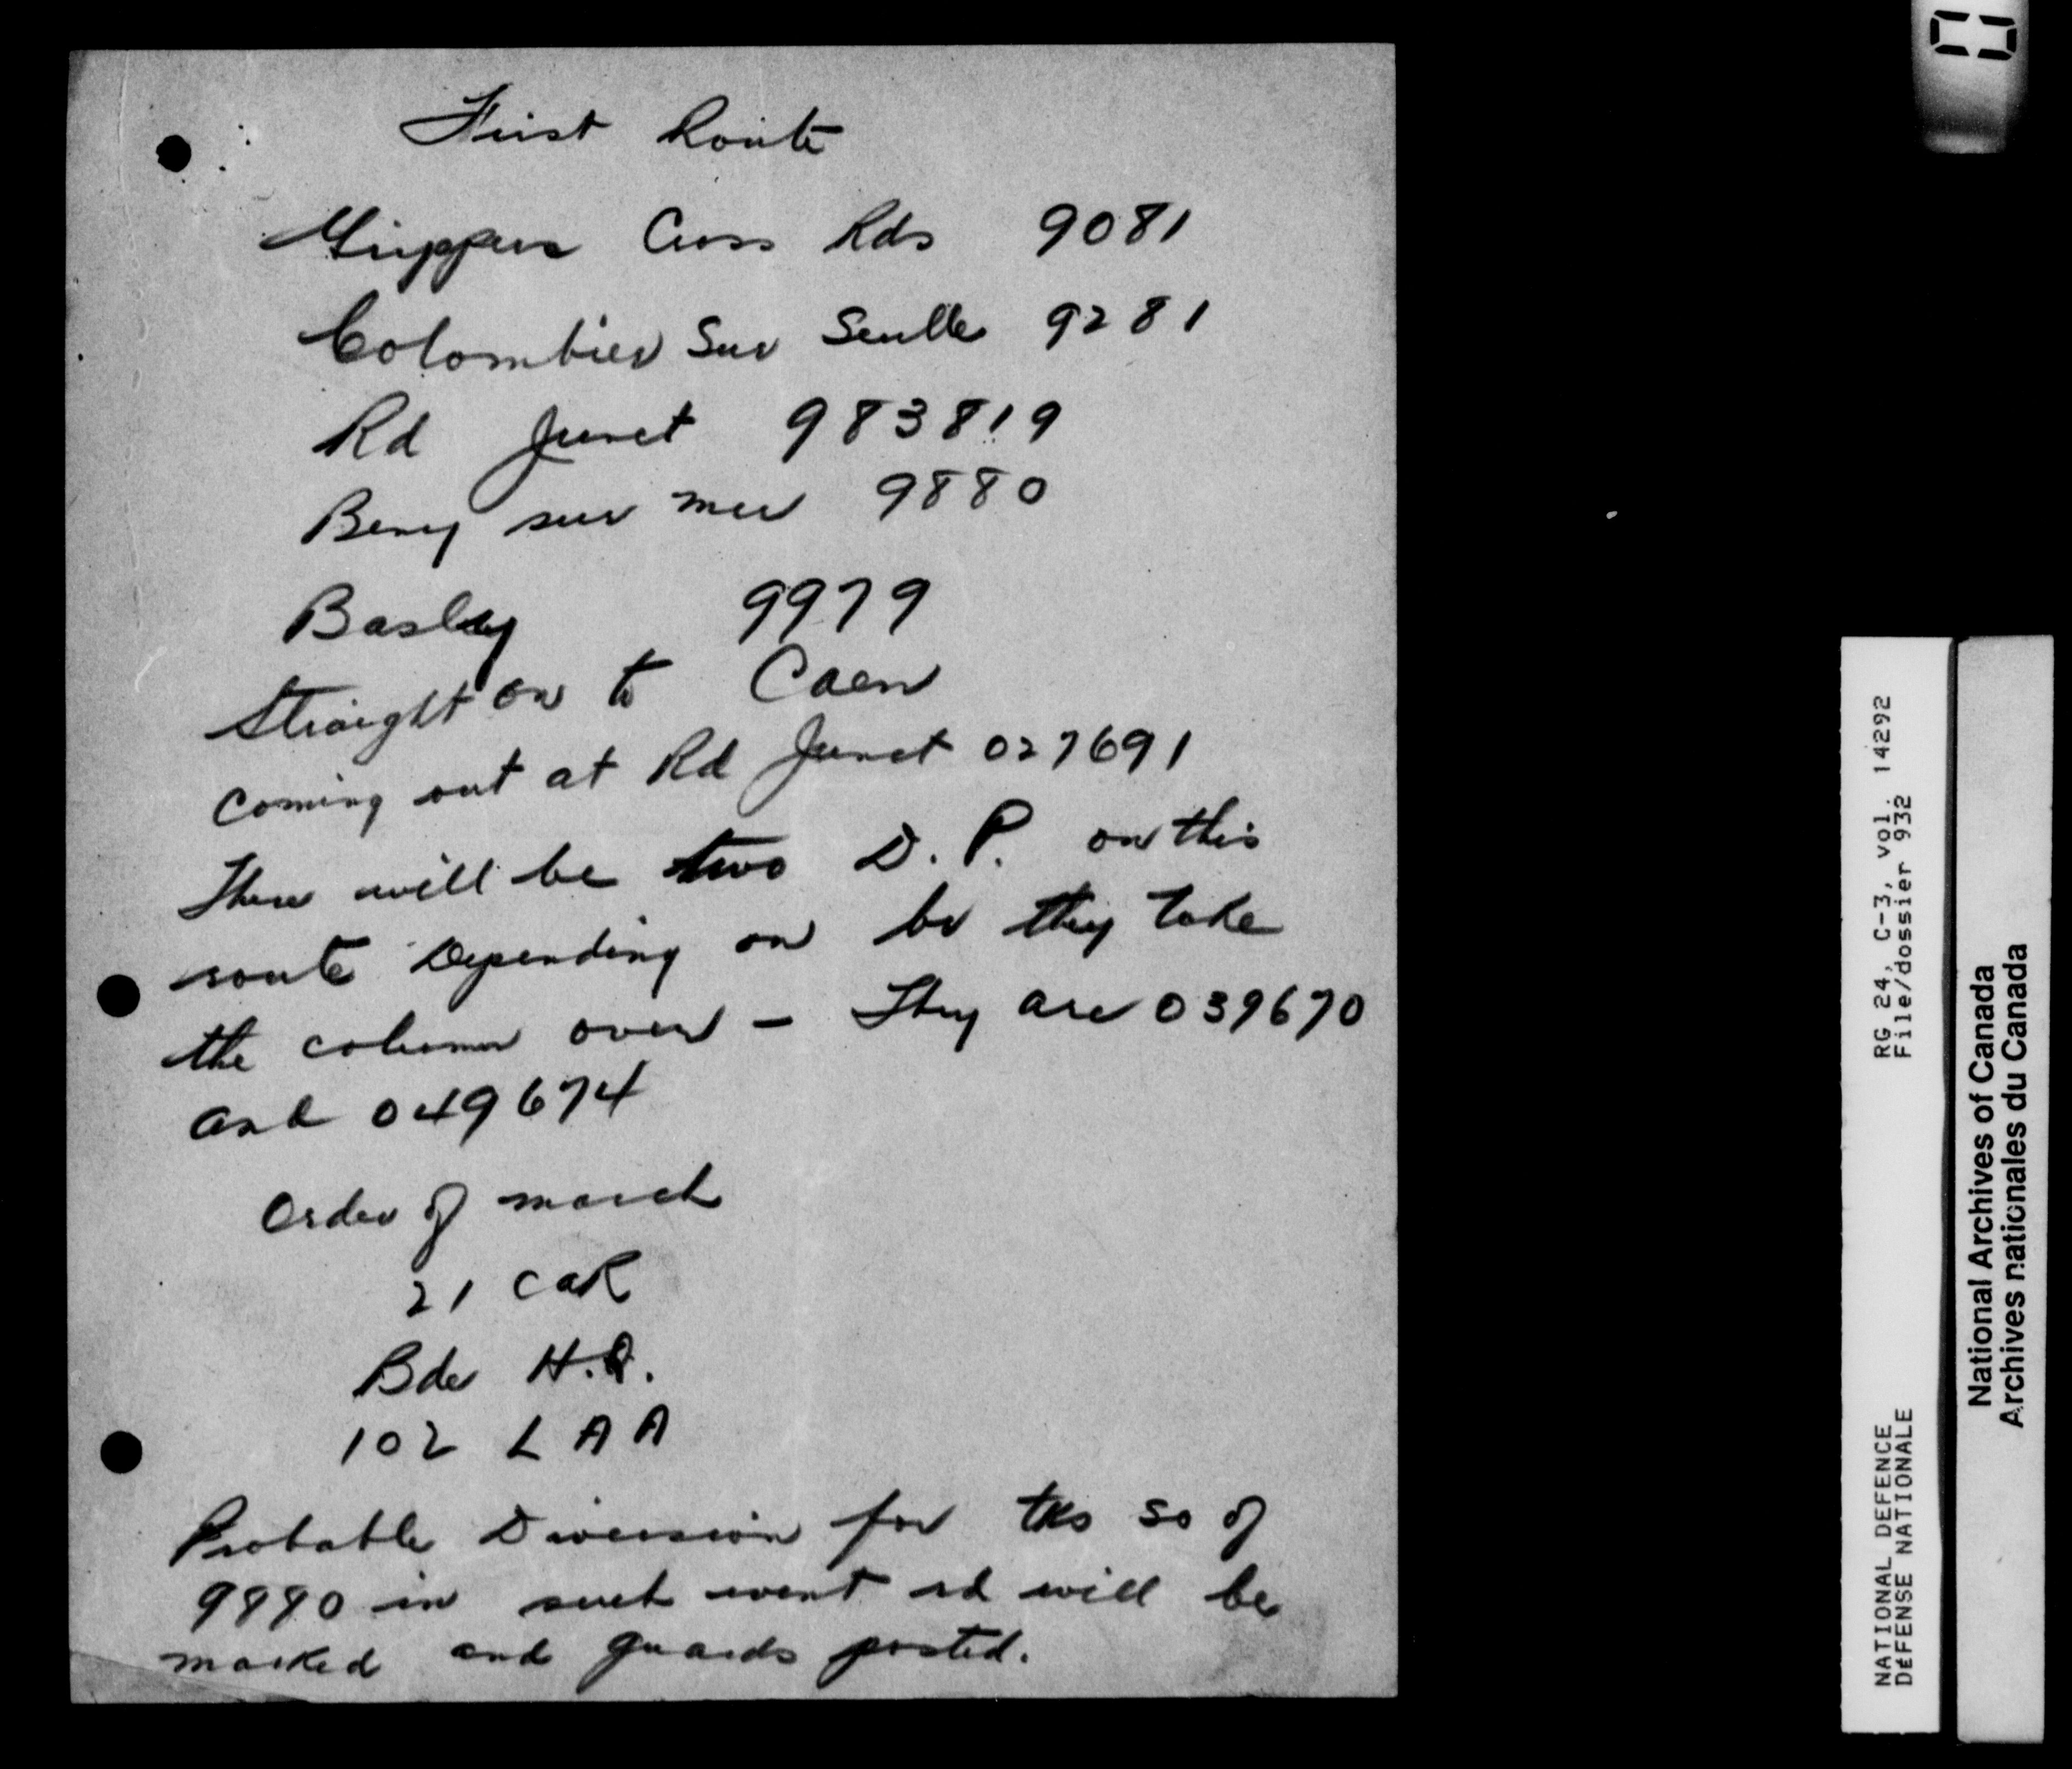 First Route
Cross Rds 9081
Colombier Sur Seulle 9281
Rd Junct 983819
Beny sur mer 9880
Basly 9979
Straight on to Caen
coming out at Rd Junct 027691
There will be two D.P. on this
route Depending on they take
the column over - They are 039670
and 049674
Order of march
21 CAR
Bde H.Q.
102 L A A
Probable Diversion for tks so of
9980 in such event rd will be
marked and guards posted.
RG 24, C-3, vol. 14292
File/dossier 932
NATIONAL DEFENCE
DÉFENSE NATIONALE
National Archives of Canada
Archives nationales du Canada